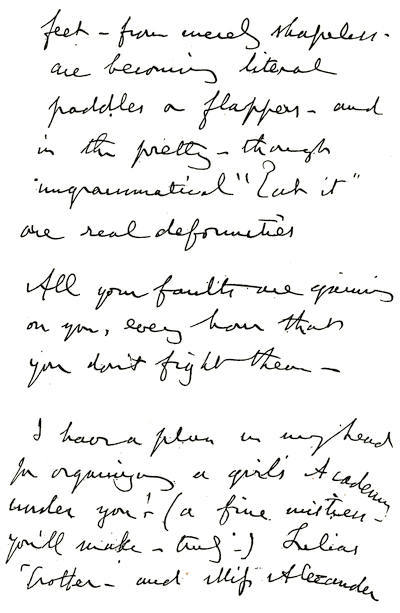 feet - from merely shapeless -
are becoming literal
paddles or flappers - and
in the pretty - though
ungrammatical "Eat it"
are real deformities
All your faults are gaining
on you, every hour that
you don't fight them -
I have a plan in my head
for organizing a girl's Academy
under you! - (a fine mistress -
you'll make - truly -) Lilias
Trotter - and Miss Alexander